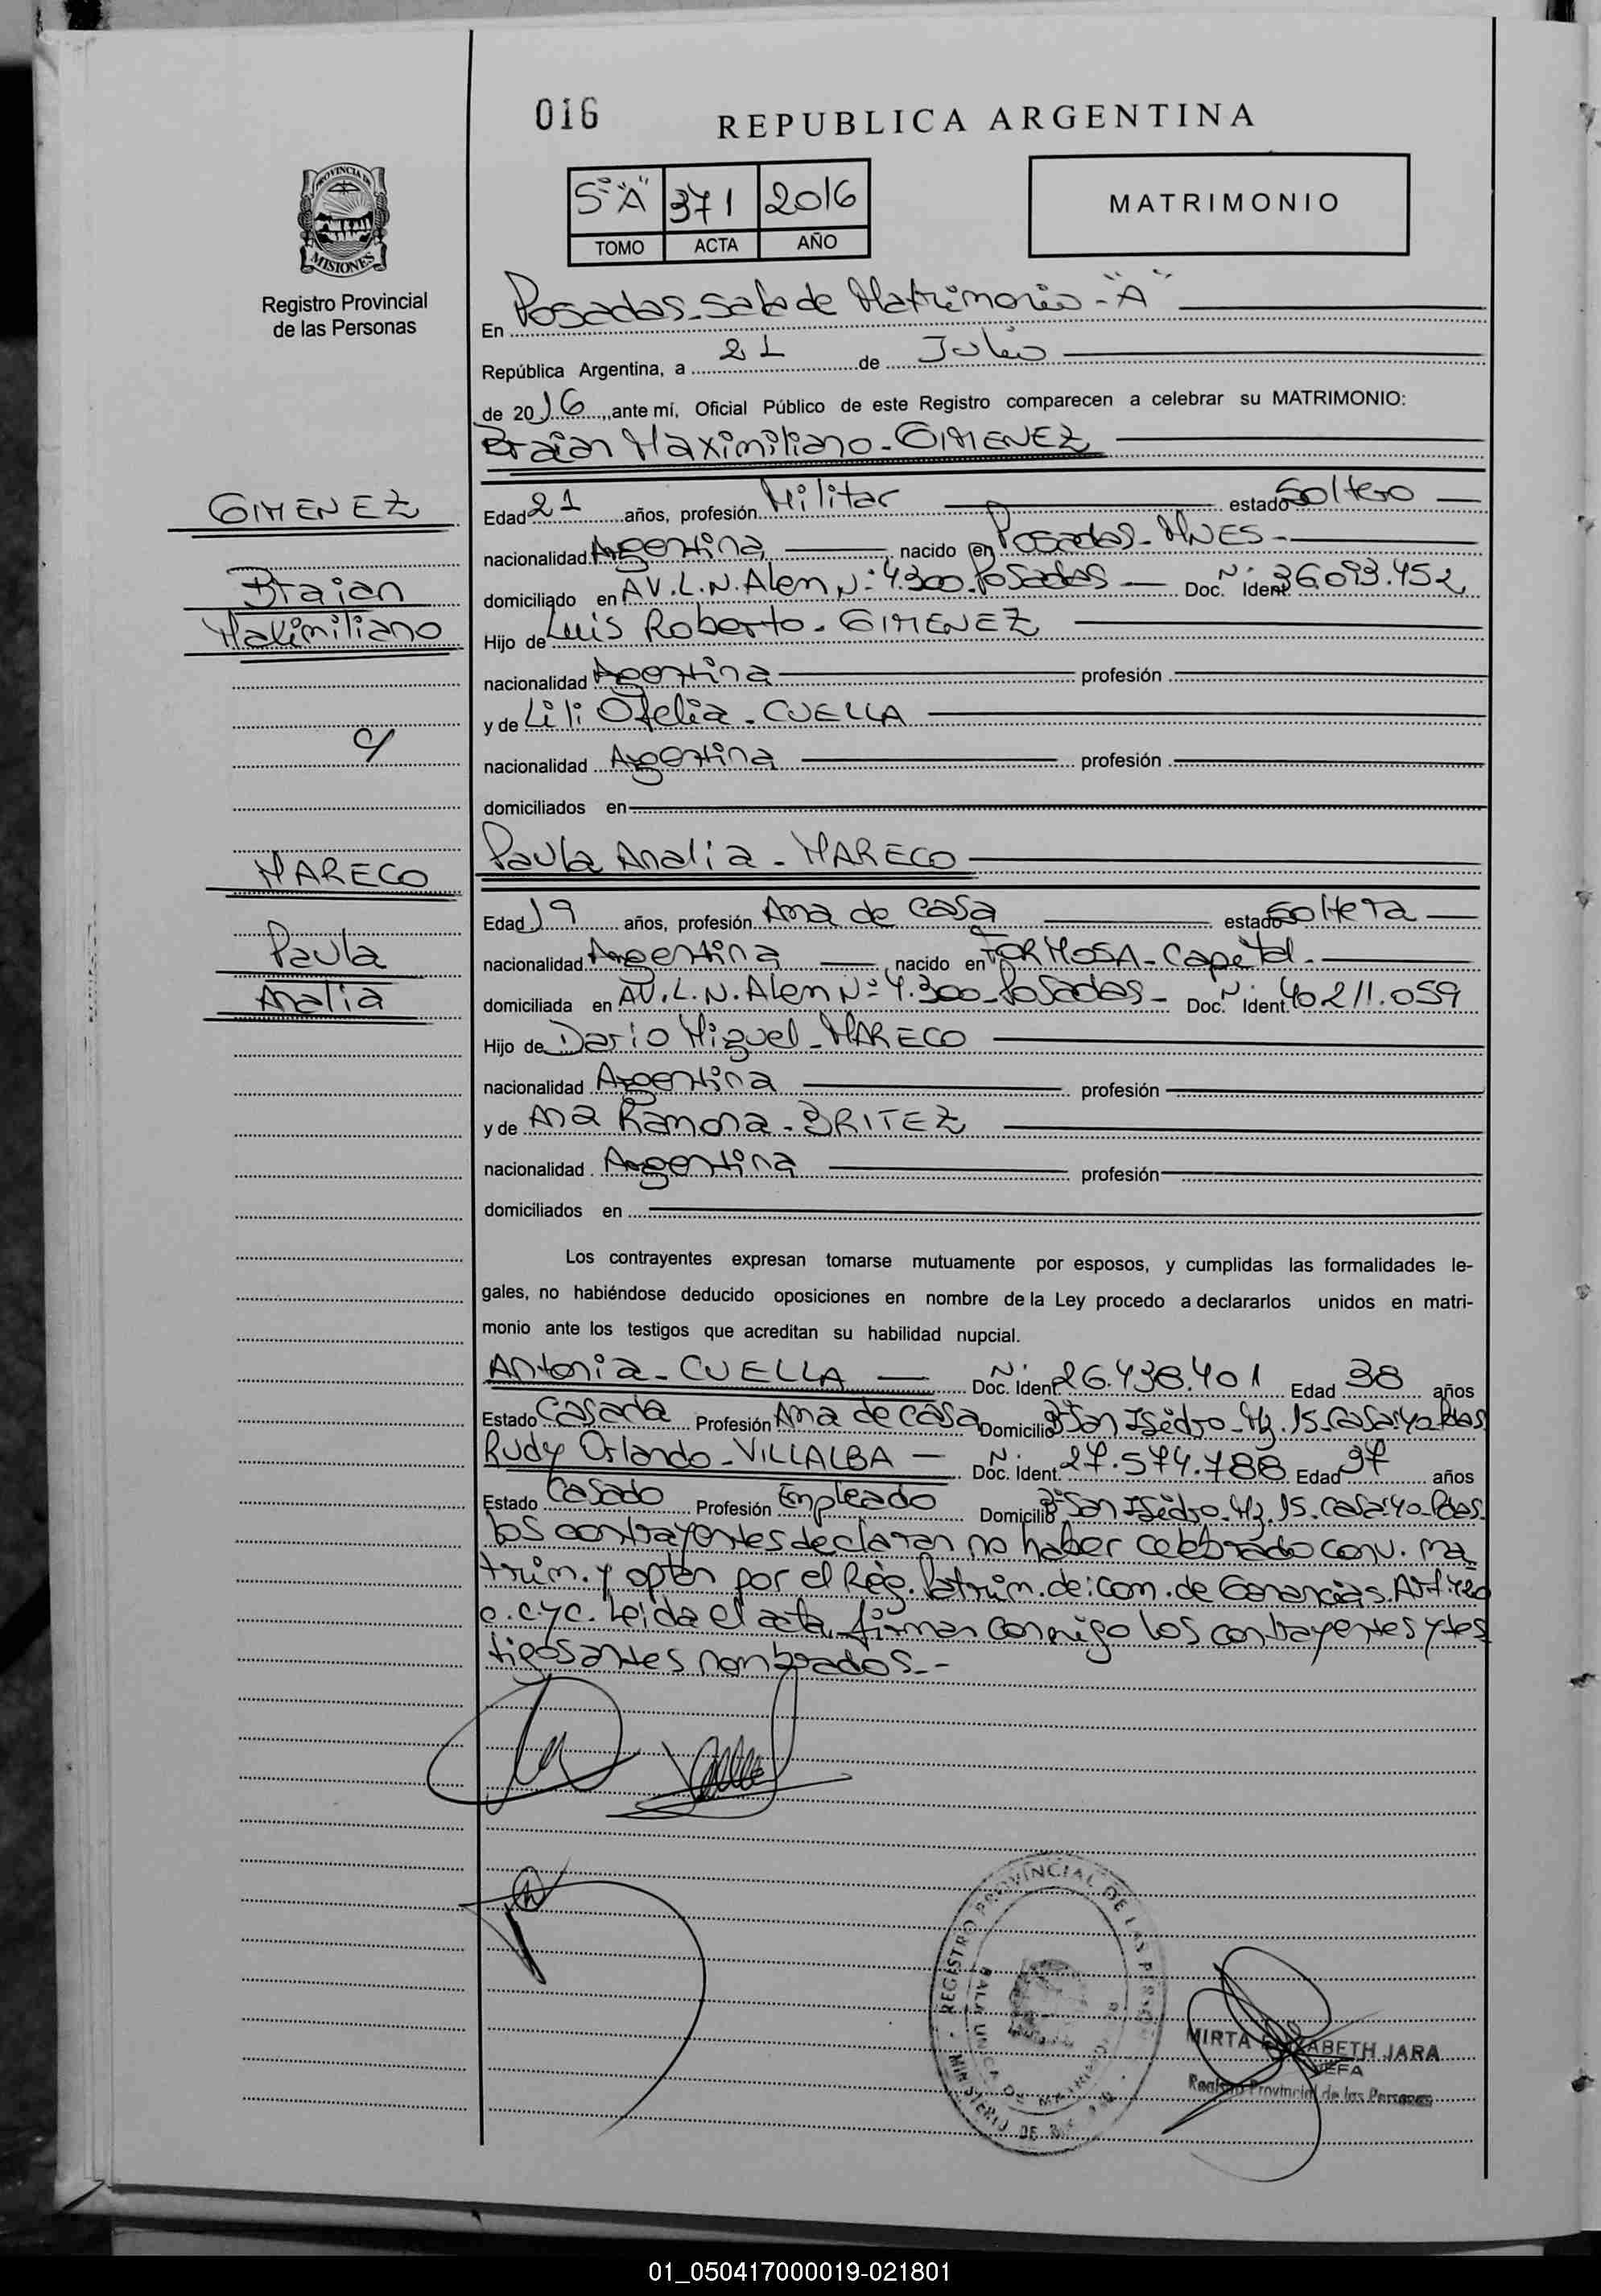 016
REPUBLICA ARGENTINA
PROVINCIA DE
MISIONES
Registro Provincial
de las Personas
5º "A" 371 2016
TOMO ACTA AÑO
MATRIMONIO
En Posadas - Sala de Matrimonio - "A"
República Argentina, a 21 de Julio
de 2016, ante mí, Oficial Público de este Registro comparecen a celebrar su MATRIMONIO:
Braian Maximiliano - GIMENEZ
GIMENEZ
Braian
Maximiliano
Edad 21 años, profesión Militar estado Soltero
nacionalidad Argentina, nacido en Posadas - MNES -
domiciliado en AV. L. N. Alem Nº 4.300 - Posadas - Doc. Nº Ident. 36.093.452
Hijo de Luis Roberto - GIMENEZ
nacionalidad Argentina profesión
y de Lili Ofelia - CUELLA
nacionalidad Argentina profesión
domiciliados en
c/
MARECO
Paula
Analia
Paula Analia - MARECO
Edad 19 años, profesión Ama de casa estado Soltera
nacionalidad Argentina, nacido en FORMOSA - Capital -
domiciliada en AV. L. N. Alem Nº 4.300 - Posadas - Doc. Nº Ident. 40.211.059
Hijo de Dario Miguel - MARECO
nacionalidad Argentina profesión
y de Ana Ramona - BRITEZ
nacionalidad Argentina profesión
domiciliados en
Los contrayentes expresan tomarse mutuamente por esposos, y cumplidas las formalidades le-
gales, no habiéndose deducido oposiciones en nombre de la Ley procedo a declararlos unidos en matri-
monio ante los testigos que acreditan su habilidad nupcial.
Antonia - CUELLA - Doc. Nº Ident. 26.438.401 Edad 38 años
Estado Casada Profesión Ama de casa Domicilio Bº San Isidro - Mz. 15 - casa: 40 - Pdas.
Rudy Orlando - VILLALBA - Doc. Nº Ident. 27.574.788 Edad 37 años
Estado Casado Profesión Empleado Domicilio Bº San Isidro - Mz. 15 - casa: 40 - Pdas.
los contrayentes declaran no haber celebrado conv. ma-
trim. y optan por el Rég. Patrim. de: com. de Ganancias. Art 420
c. c. y c. Leida el acta, firman conmigo los contrayentes y tes
tigos antes nombrados. -
REGISTRO PROVINCIAL DE LAS PERSONAS
MINISTERIO DE
MIRTA ELIZABETH JARA
JEFA
Registro Provincial de las Personas
01_050417000019-021801